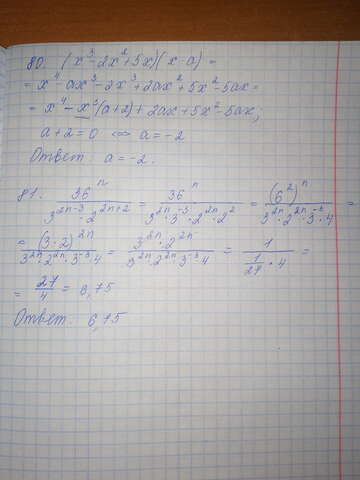 80. (x³-2x²+5x)(x-a) =
= x⁴-ax³-2x³+2ax²+5x²-5ax=
= x⁴-x³(a+2)+2ax+5x²-5ax;
a+2=0 <=> a=-2
Ответ: a=-2.
81. 36ⁿ / (3²ⁿ⁻³·2²ⁿ⁺²) = 36ⁿ / (3²ⁿ·3⁻³·2²ⁿ·2²) = (6²)ⁿ / (3²ⁿ·2²ⁿ·3⁻³·4) =
= (3·2)²ⁿ / (3²ⁿ·2²ⁿ·3⁻³·4) = 3²ⁿ·2²ⁿ / (3²ⁿ·2²ⁿ·3⁻³·4) = 1 / (1/27·4) =
= 27/4 = 6,75
Ответ: 6,75